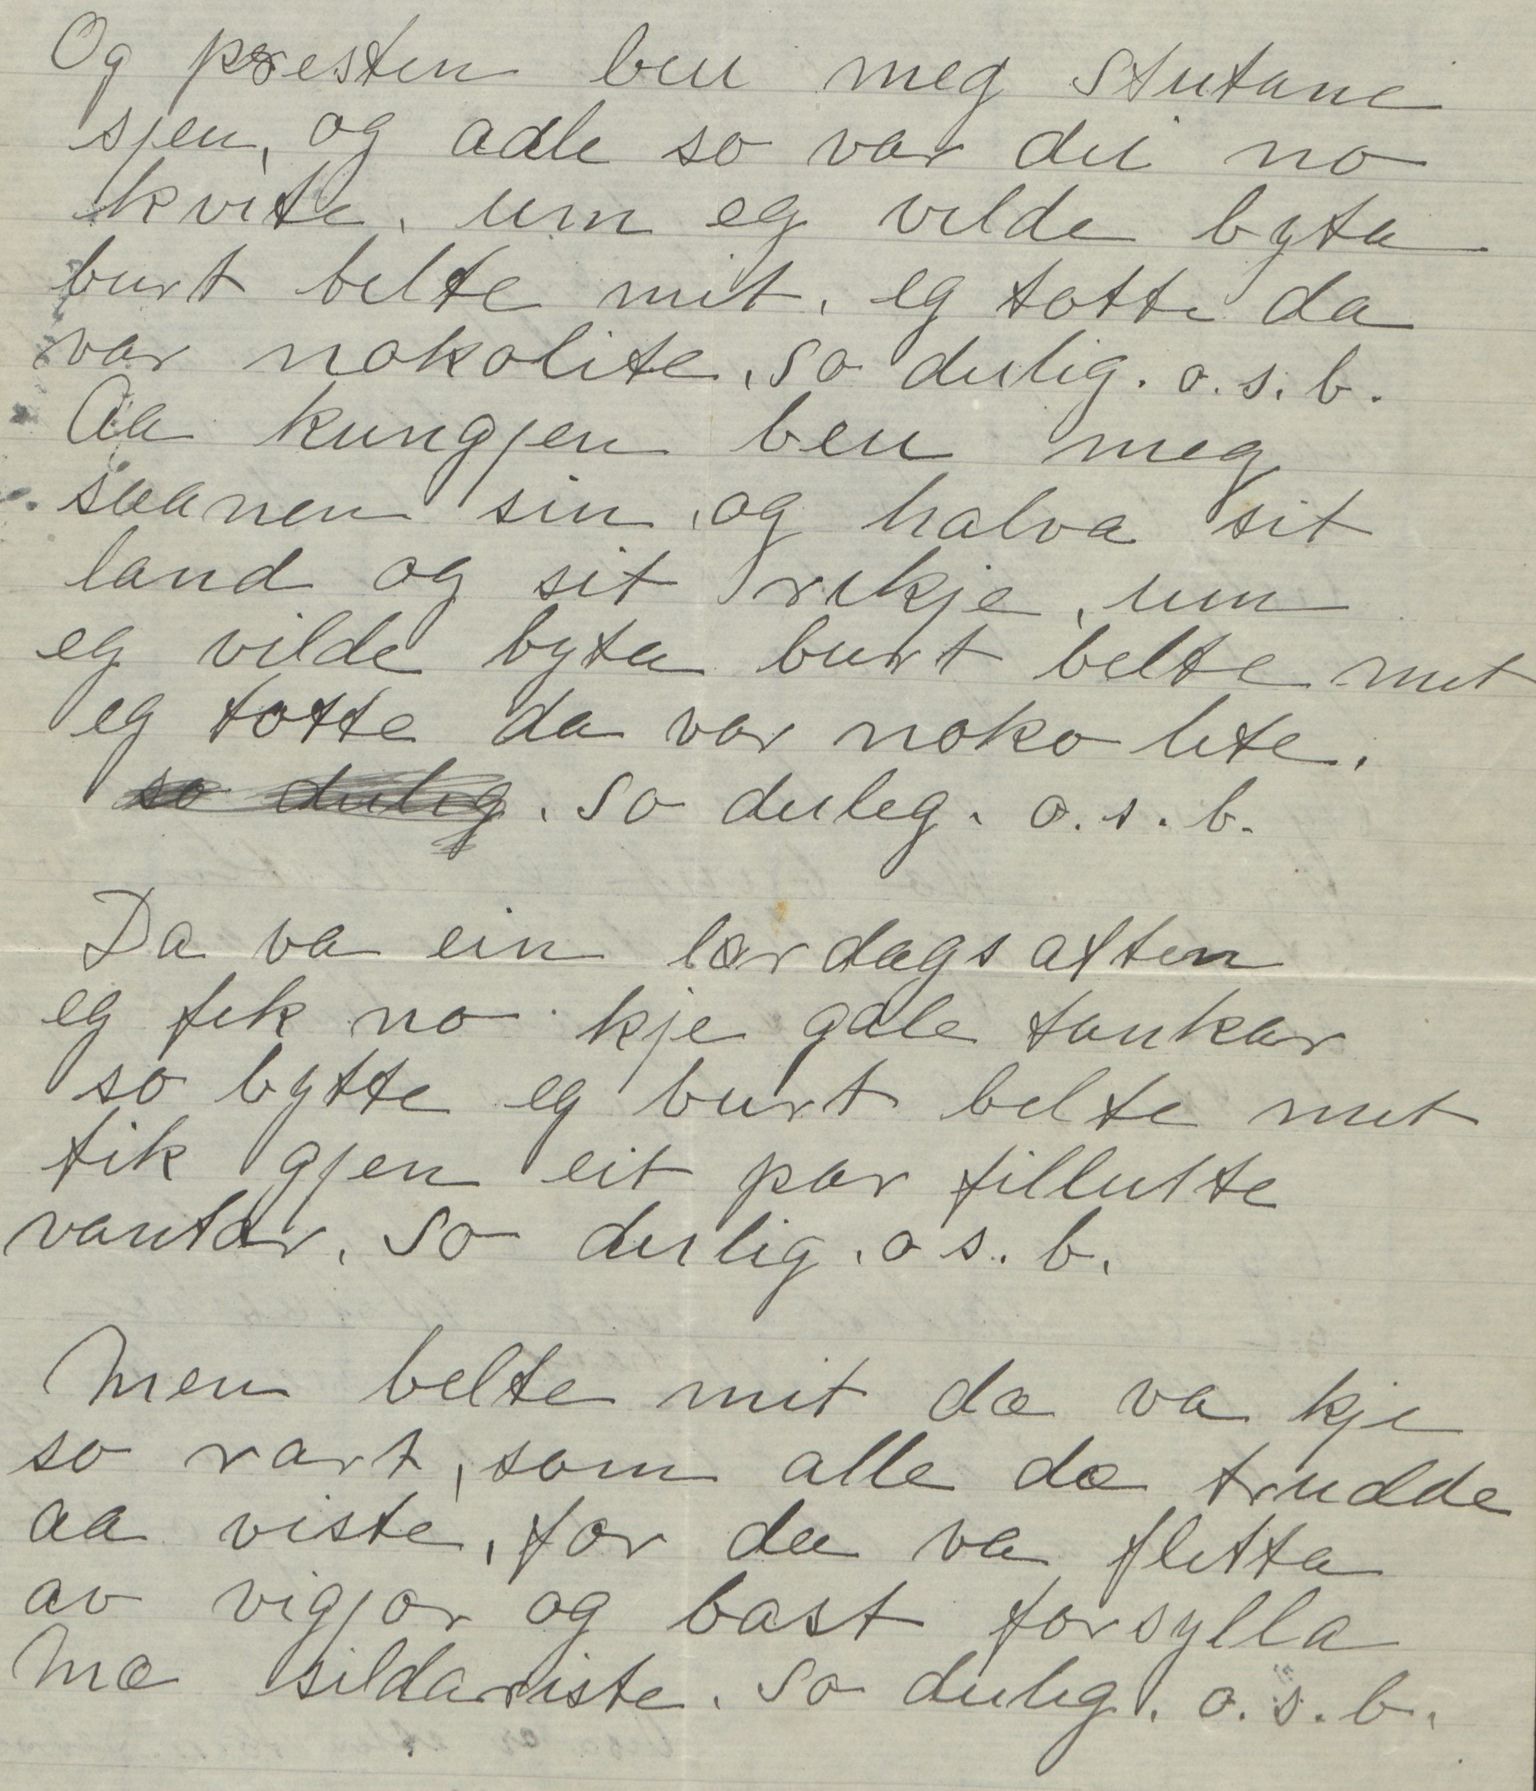 Og presten beu meg stutane
sjen, og adle so var dei no
kvite, um eg vilde byta
burt belte mit, eg totte da
var nokolite, so deilig. o.s.b.
Aa kungjen beu meg
saanen sin, og halva sit
land og sit rikje, um
eg vilde byta burt belte mit
eg totte da var noko lite.
so deileg. so deileg. o.s.b.
Da va ein lørdagsaften
eg fek no kje gale tankar
so bytte eg burt belte mit
fik gjen eit par fillutte
vantar. So deilig. o s. b.
Men belte mit dæ va kje
so rart, som alle dæ trudde
aa viste, for dæ va fletta
av vigjor og bast forsylla
Mæ sildariste. So deileg. o.s.b.